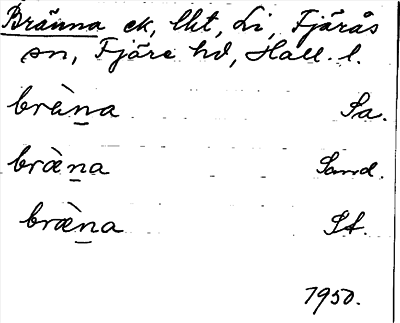 Bränna ek, lkt, Li, Fjärås
sn, Fjäre hd, Hall. l.
bràna Sa.
bræ̀na Sand.
bræ̀na St.
1950.